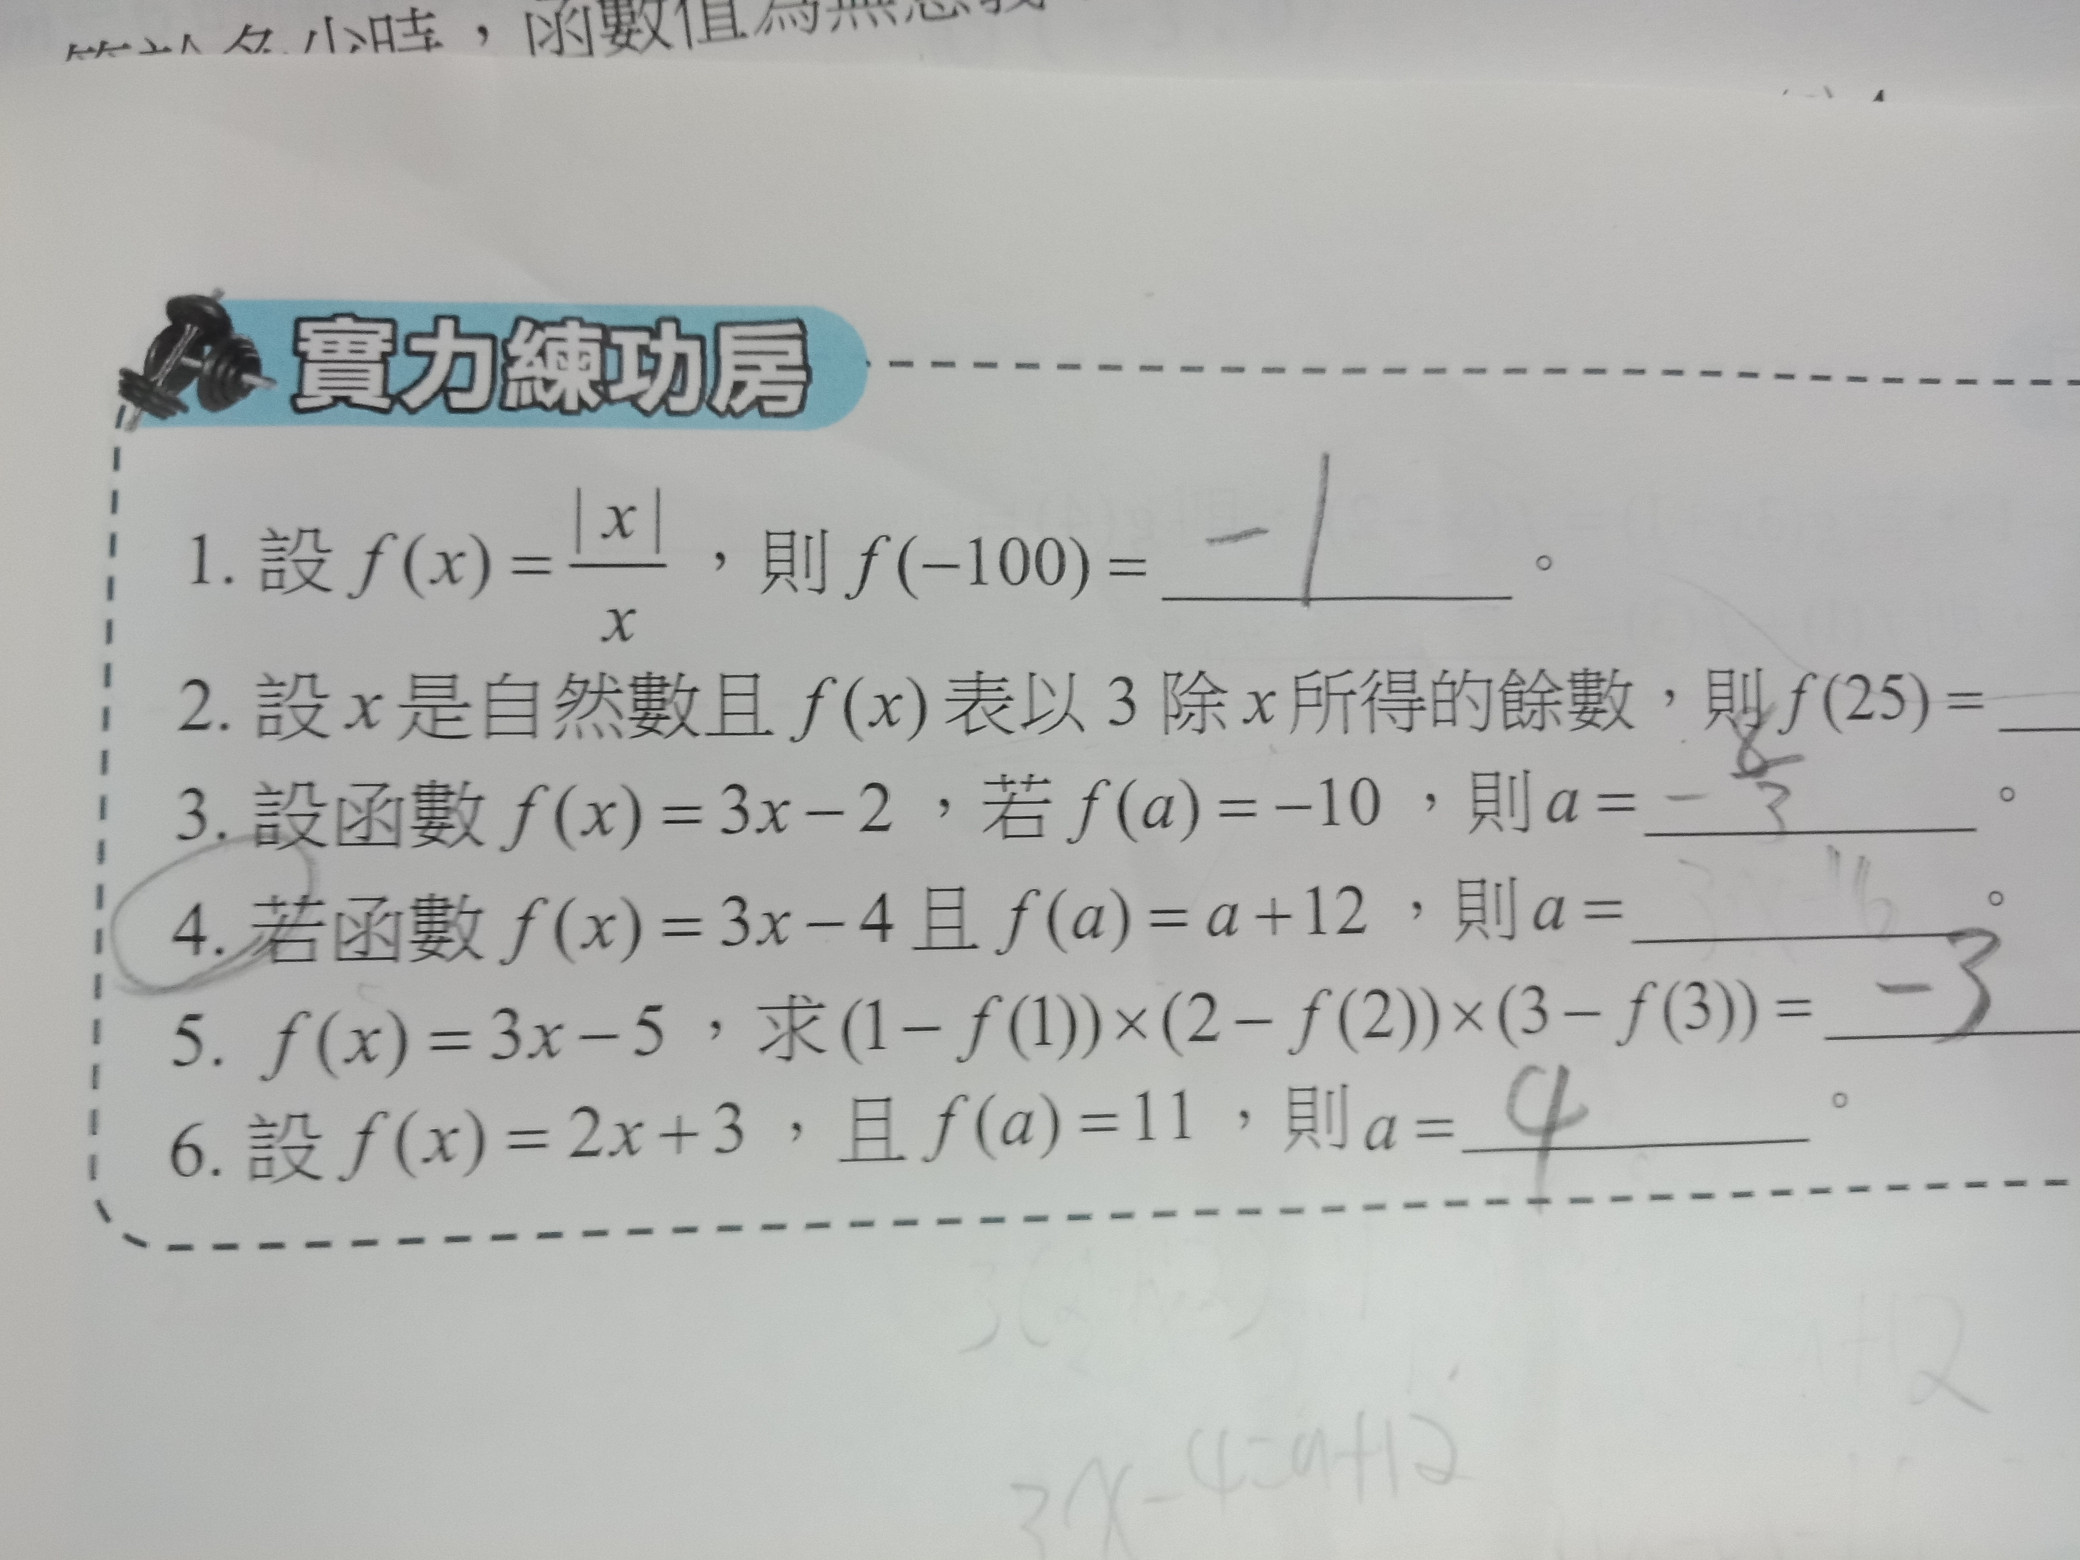 小時，函數值為無意義
實力練功房
1. 設 f(x) = |x|/x ，則 f(−100) = -1 。
2. 設 x 是自然數且 f(x) 表以 3 除 x 所得的餘數，則 f(25) =
3. 設函數 f(x) = 3x − 2 ，若 f(a) = −10 ，則 a = -8/3 。
4. 若函數 f(x) = 3x − 4 且 f(a) = a + 12 ，則 a = 。
5. f(x) = 3x − 5 ，求 (1 − f(1)) × (2 − f(2)) × (3 − f(3)) = -3
6. 設 f(x) = 2x + 3 ，且 f(a) = 11 ，則 a = 4 。
+12
3x-4=a+12